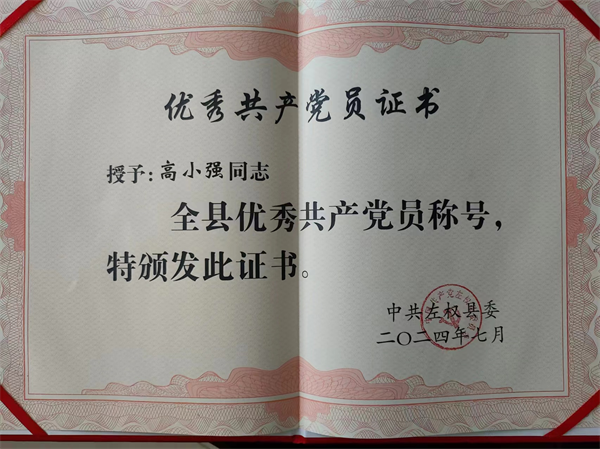 优秀共产党员证书
授予：高小强同志
全县优秀共产党员称号，
特颁发此证书。
中共左权县委
二〇二四年七月